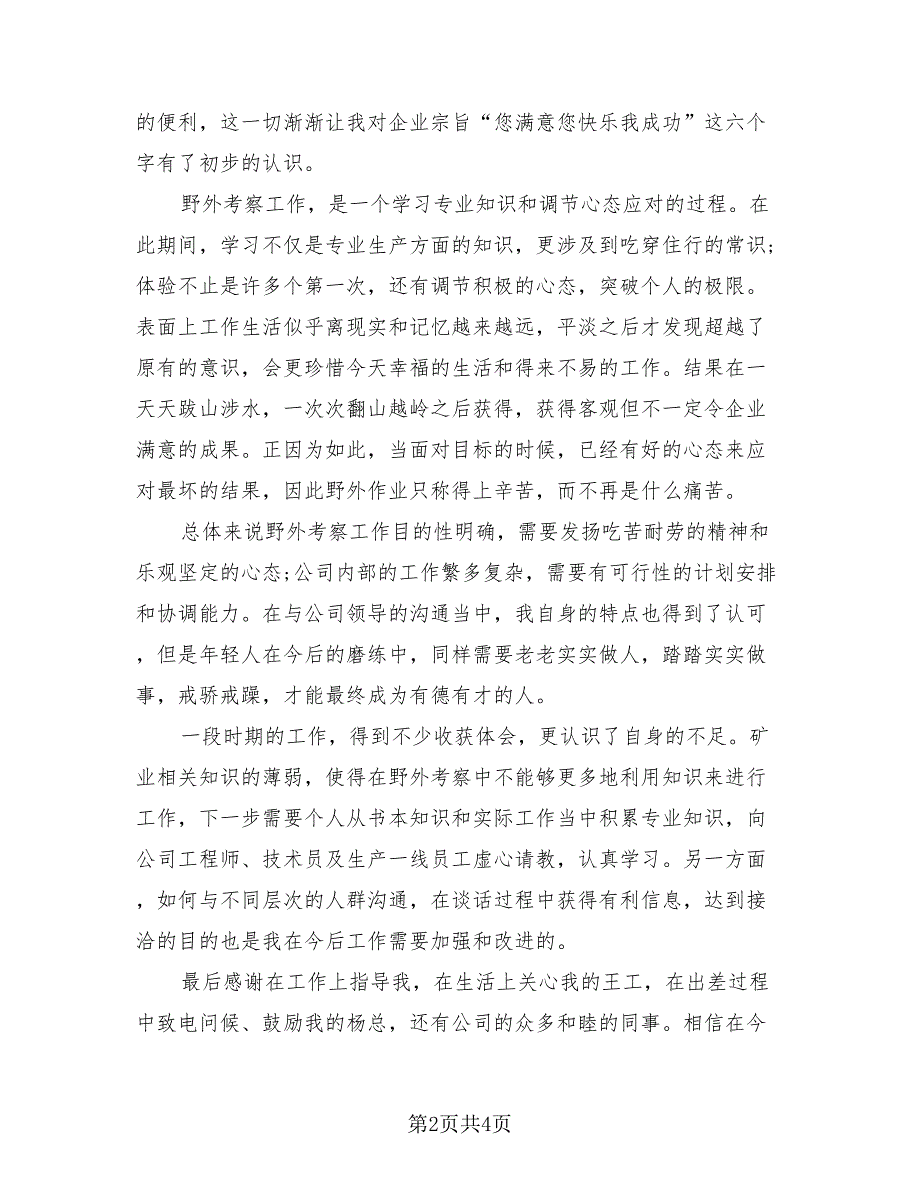 的便利，这一切渐渐让我对企业宗旨“您满意您快乐我成功”这六个
字有了初步的认识。
野外考察工作，是一个学习专业知识和调节心态应对的过程。在
此期间，学习不仅是专业生产方面的知识，更涉及到吃穿住行的常识;
体验不止是许多个第一次，还有调节积极的心态，突破个人的极限。
表面上工作生活似乎离现实和记忆越来越远，平淡之后才发现超越了
原有的意识，会更珍惜今天幸福的生活和得来不易的工作。结果在一
天天跋山涉水，一次次翻山越岭之后获得，获得客观但不一定令企业
满意的成果。正因为如此，当面对目标的时候，已经有好的心态来应
对最坏的结果，因此野外作业只称得上辛苦，而不再是什么痛苦。
总体来说野外考察工作目的性明确，需要发扬吃苦耐劳的精神和
乐观坚定的心态;公司内部的工作繁多复杂，需要有可行性的计划安排
和协调能力。在与公司领导的沟通当中，我自身的特点也得到了认可
，但是年轻人在今后的磨练中，同样需要老老实实做人，踏踏实实做
事，戒骄戒躁，才能最终成为有德有才的人。
一段时期的工作，得到不少收获体会，更认识了自身的不足。矿
业相关知识的薄弱，使得在野外考察中不能够更多地利用知识来进行
工作，下一步需要个人从书本知识和实际工作当中积累专业知识，向
公司工程师、技术员及生产一线员工虚心请教，认真学习。另一方面
，如何与不同层次的人群沟通，在谈话过程中获得有利信息，达到接
洽的目的也是我在今后工作需要加强和改进的。
最后感谢在工作上指导我，在生活上关心我的王工，在出差过程
中致电问候、鼓励我的杨总，还有公司的众多和睦的同事。相信在今
第2页共4页